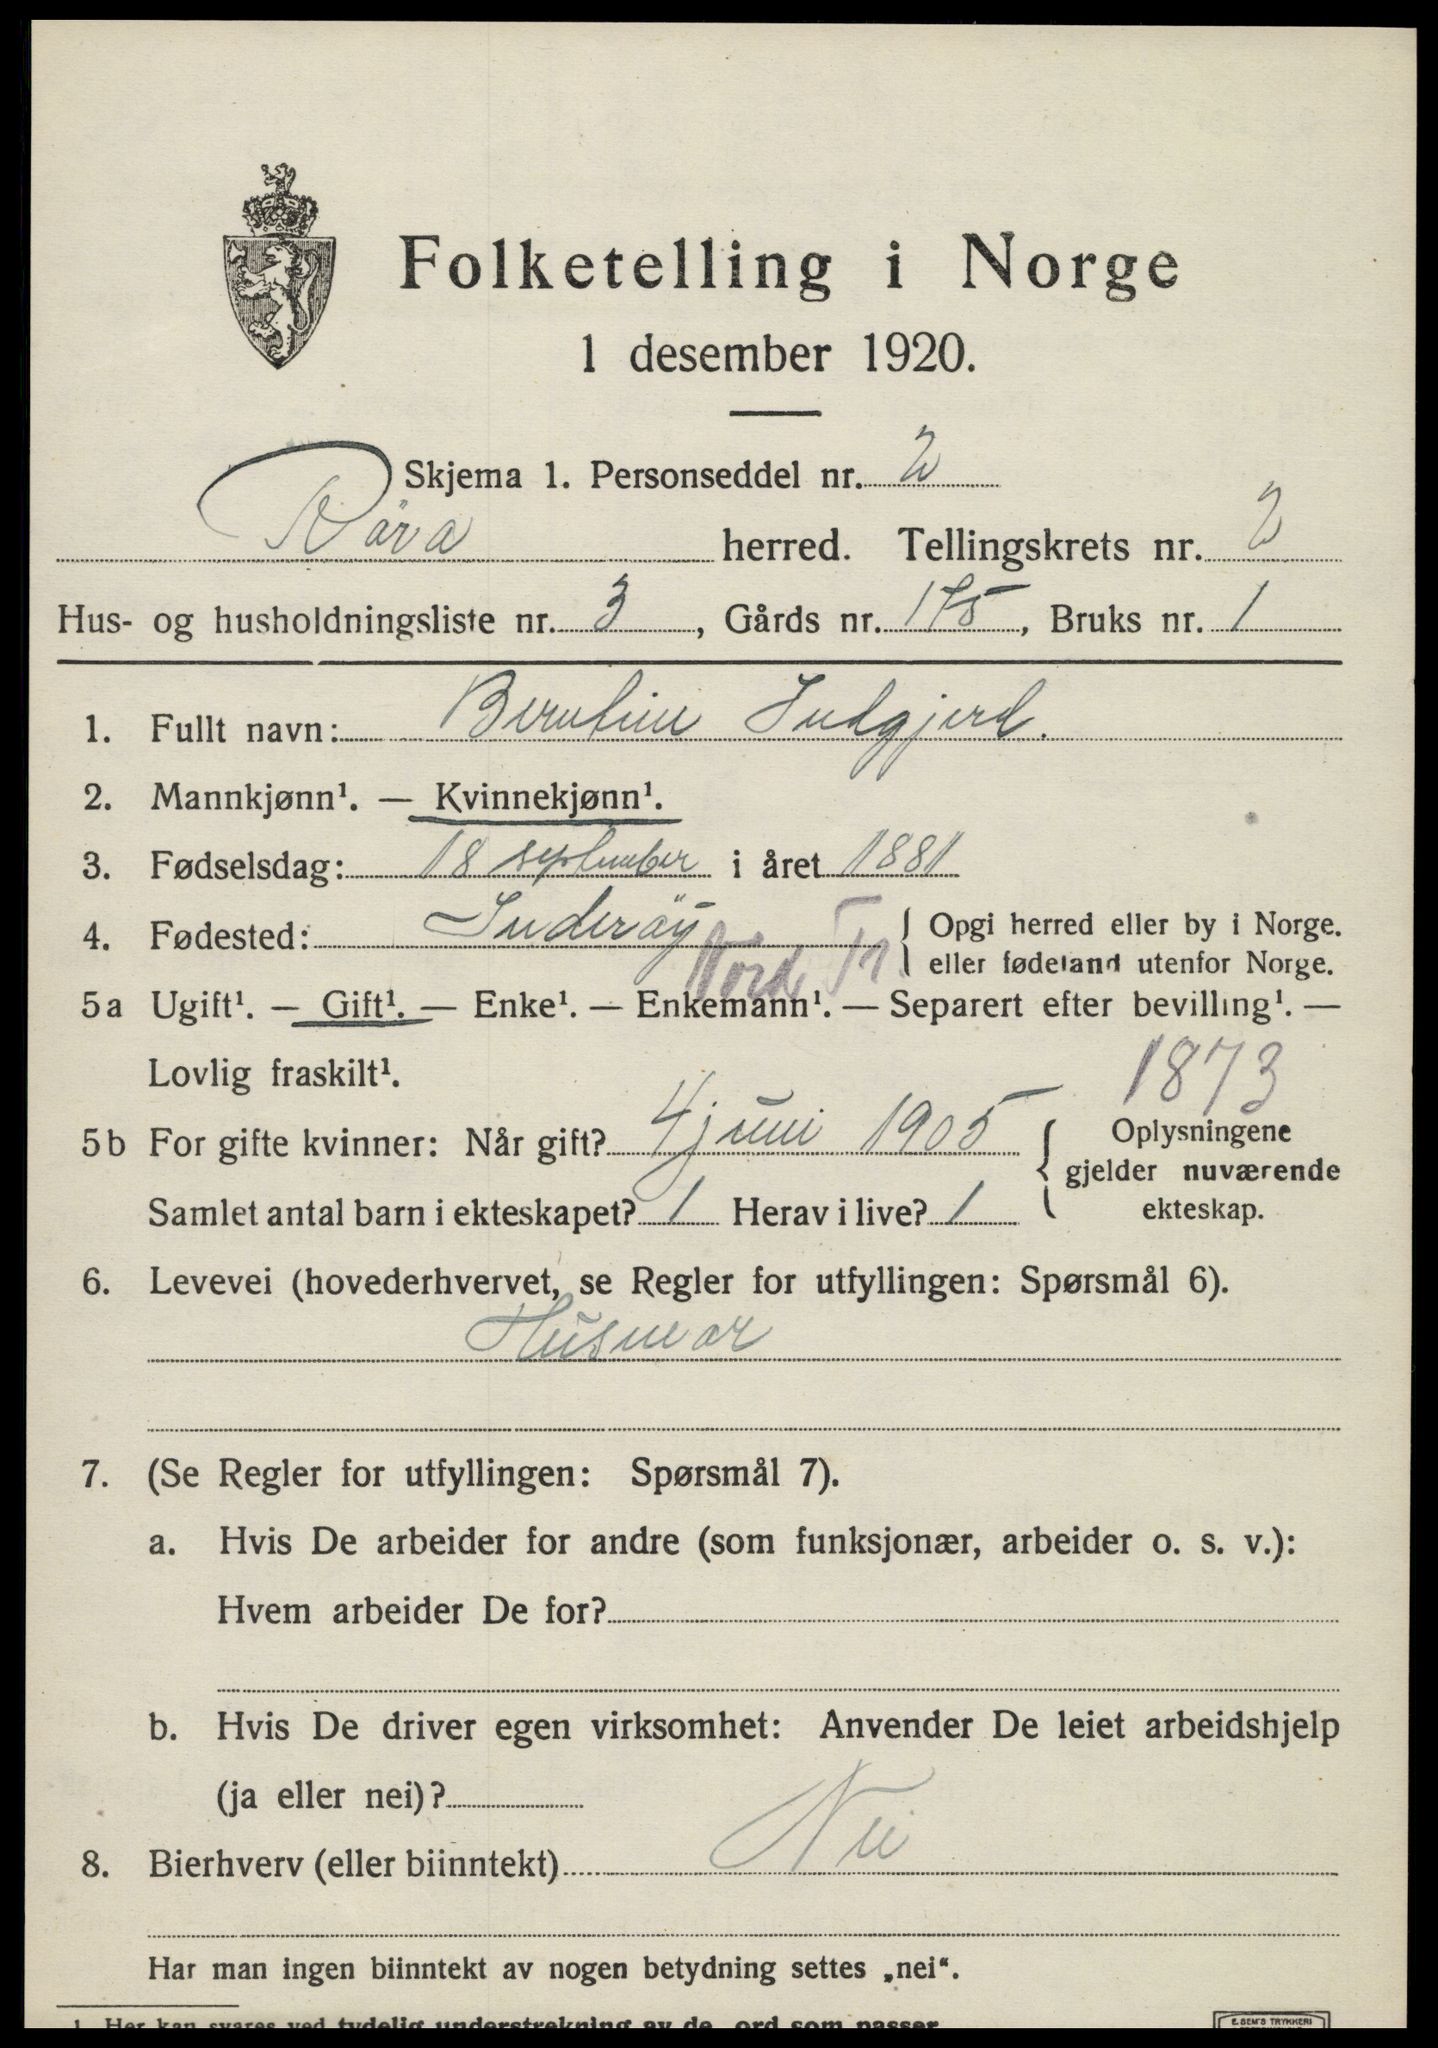 Folketelling i Norge
1 desember 1920.
Skjema 1. Personseddel nr. 2
Röra herred. Tellingskrets nr. 2
Hus- og husholdningsliste nr. 3, Gårds nr. 175, Bruks nr. 1
1. Fullt navn: Berntine Indgjerd.
2. Mannkjønn¹. — Kvinnekjønn¹.
3. Fødselsdag: 18 september i året 1881
4. Fødested: Inderöy Nord Tr. { Opgi herred eller by i Norge.
eller fødeland utenfor Norge.
5a Ugift¹. — Gift¹. — Enke¹. — Enkemann¹. — Separert efter bevilling¹. —
Lovlig fraskilt¹. 1873
5b For gifte kvinner: Når gift? 4 juni 1905 { Oplysningene
gjelder nuværende
Samlet antal barn i ekteskapet? 1 Herav i live? 1 ekteskap.
6. Levevei (hovederhvervet, se Regler for utfyllingen: Spørsmål 6).
Husmor
7. (Se Regler for utfyllingen: Spørsmål 7).
a. Hvis De arbeider for andre (som funksjonær, arbeider o. s. v.):
Hvem arbeider De for?
b. Hvis De driver egen virksomhet: Anvender De leiet arbeidshjelp
(ja eller nei)?
8. Bierhverv (eller biinntekt) Nei
Har man ingen biinntekt av nogen betydning settes „nei“.
1 Her kan svares ved tydelig understrekning av de ord som passer
E. SEM'S TRYKKERI